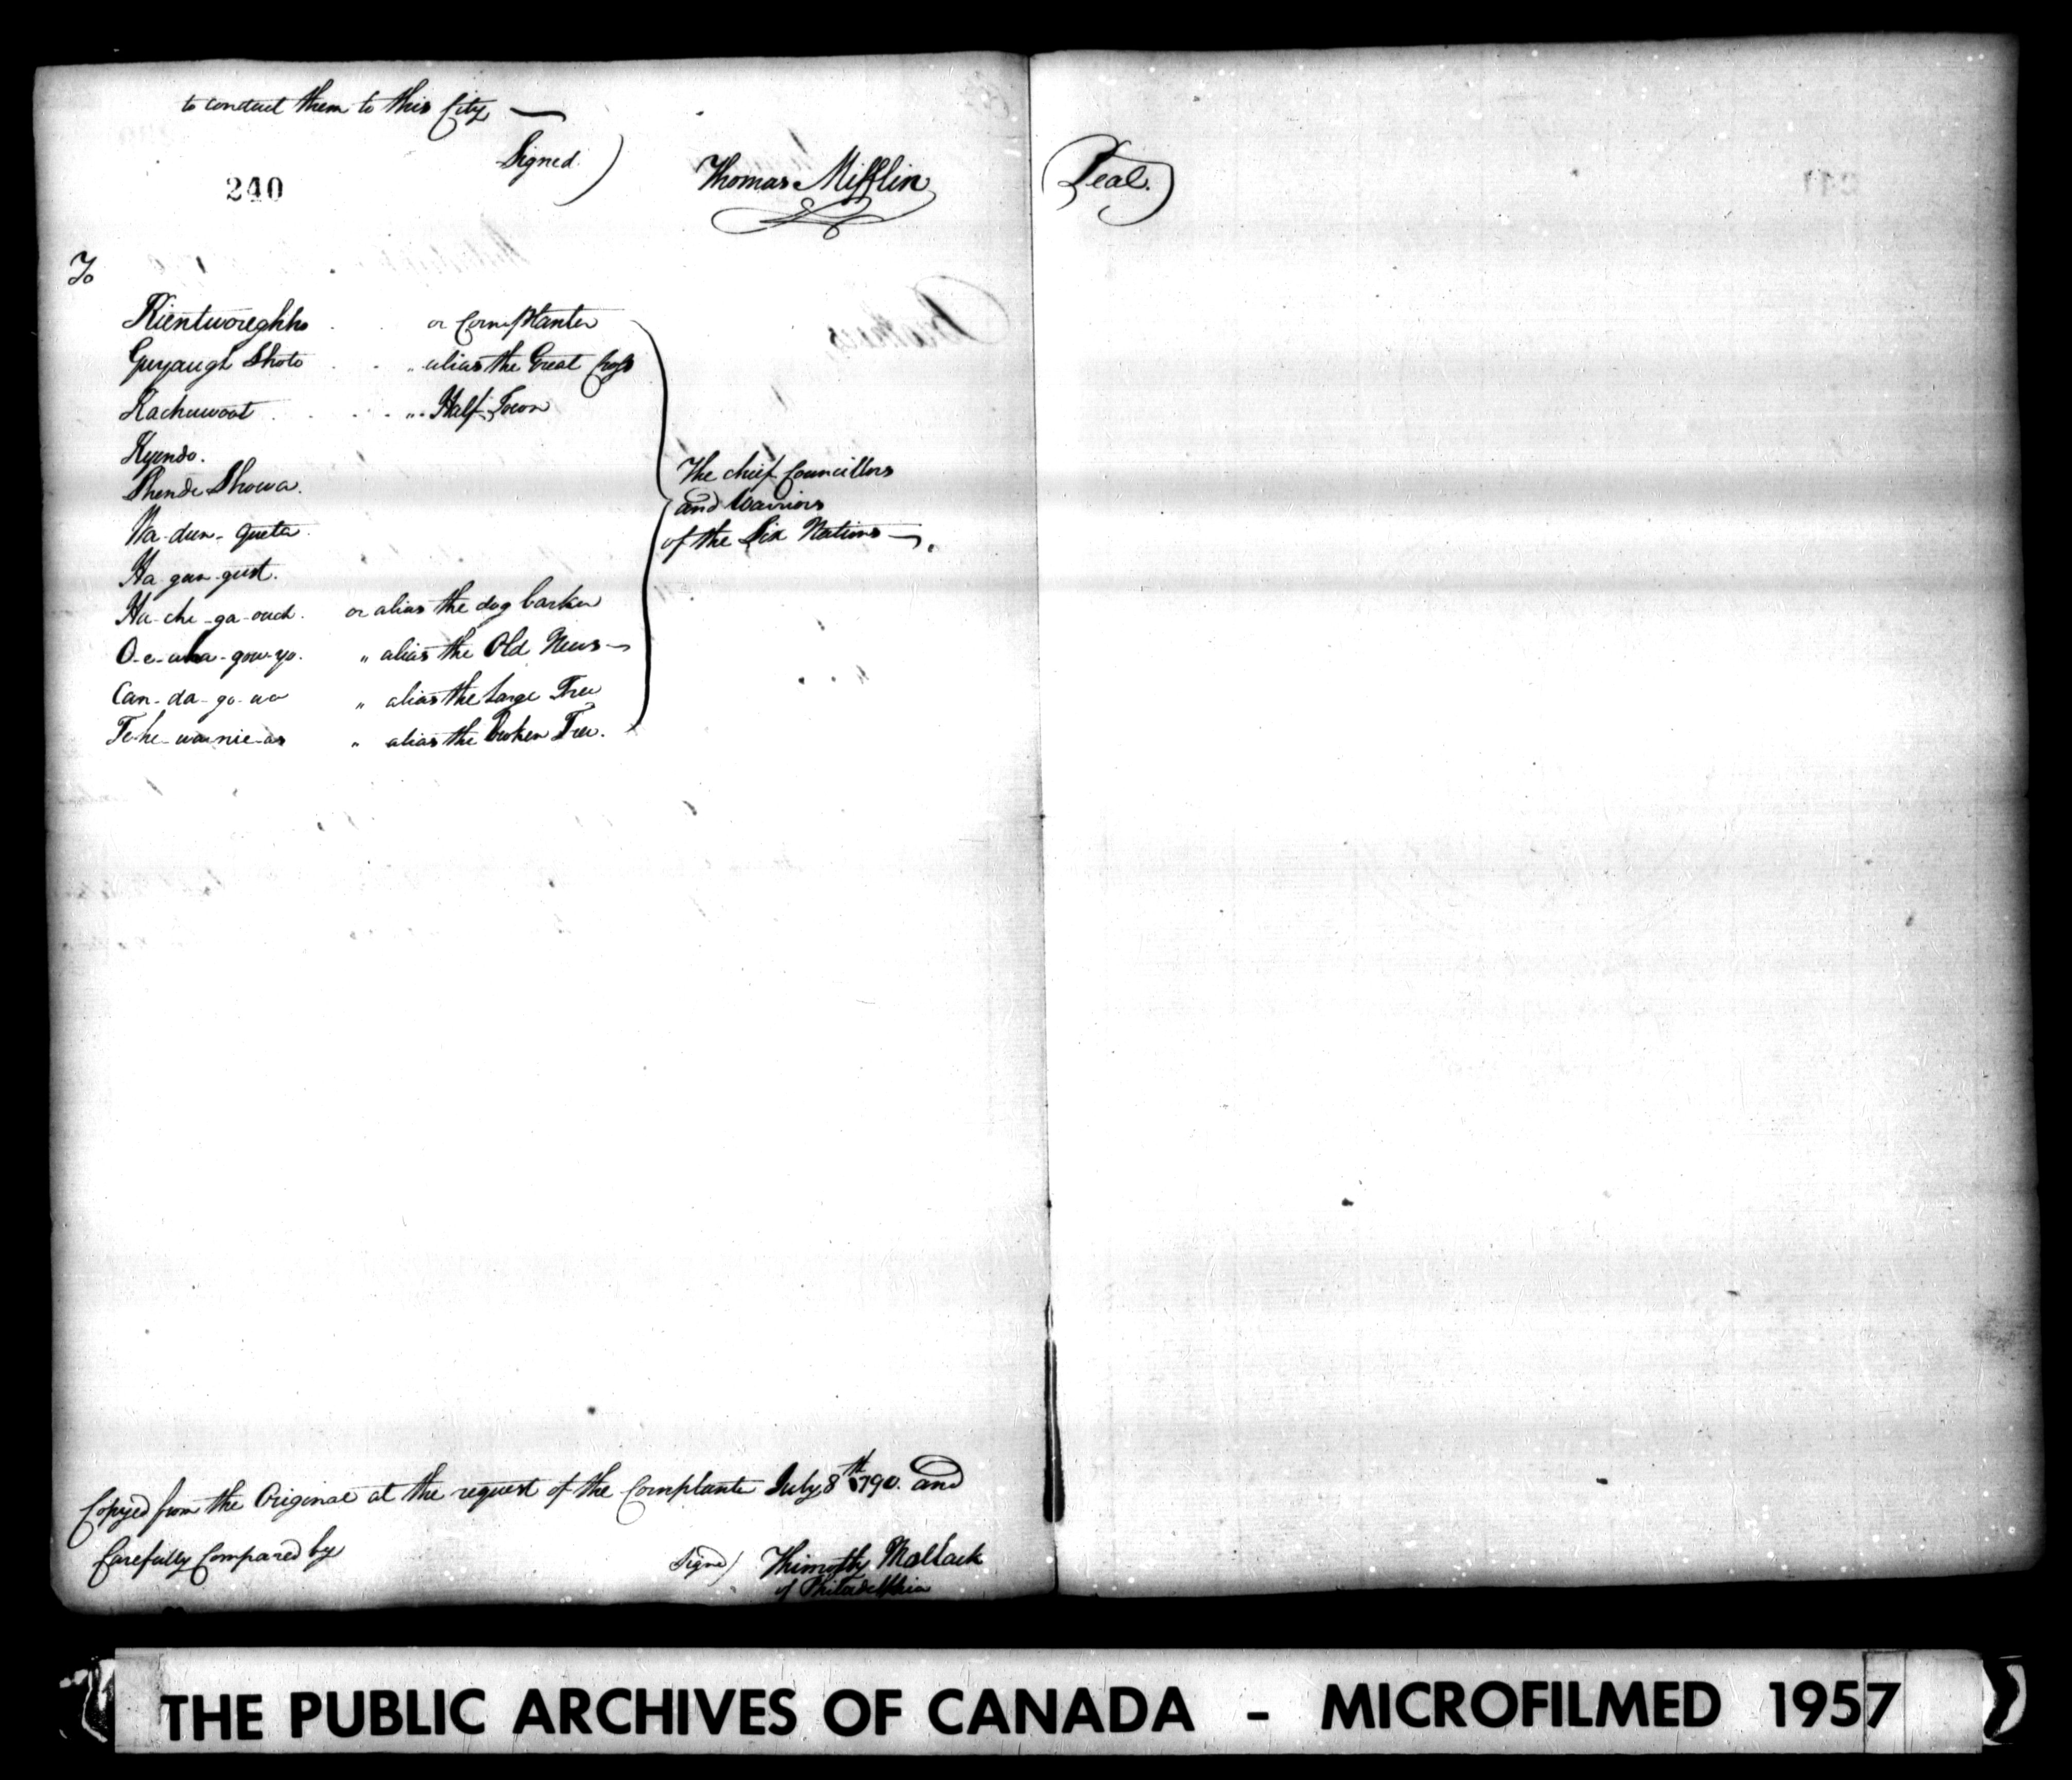 to conduct them to this City —
Signed)
Thomas Mifflin
(Seal.)
240
To
Kientworeghho . . or Cornplanter
Guyaugh Shoto . . „ alias the Great Cross
Kachuwoot . . . . „ . Half Town
Kyendo.
Shende Showa.
Wa-dun-queta.
Ha-gun-gust.
Ha-che-ga-ouch. or alias the dog barker
O-e-wha-gow-yo. „ alias the Old News —
Can-da-go-wa „ alias the large Tree
Te-he-wa-nie-as „ alias the broken Tree.
The chief Councillors
and Warriors
of the Six Nations —.
Copyed from the Original at the request of the Cornplanter July 8th 1790. and
Carefully Compared by
Signd) Thimothy Matlack
of Philadelphia
THE PUBLIC ARCHIVES OF CANADA - MICROFILMED 1957